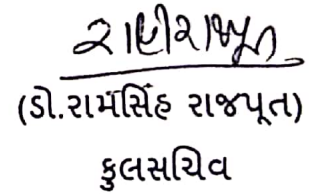 (ડો.રામસિંહ રાજપૂત)
કુલસચિવ